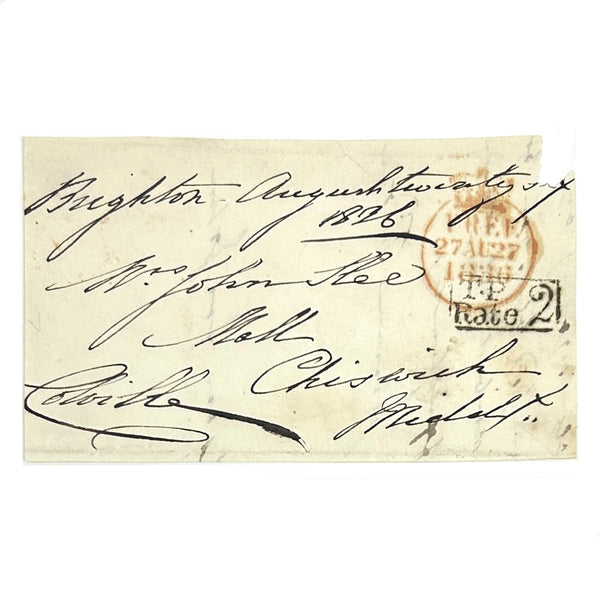 Brighton August twenty six
1836
Mrs John Slee
Mall
Chiswick
Colville
Middsx.
FREE
27 AU 27
1836
T.P
Rate 2